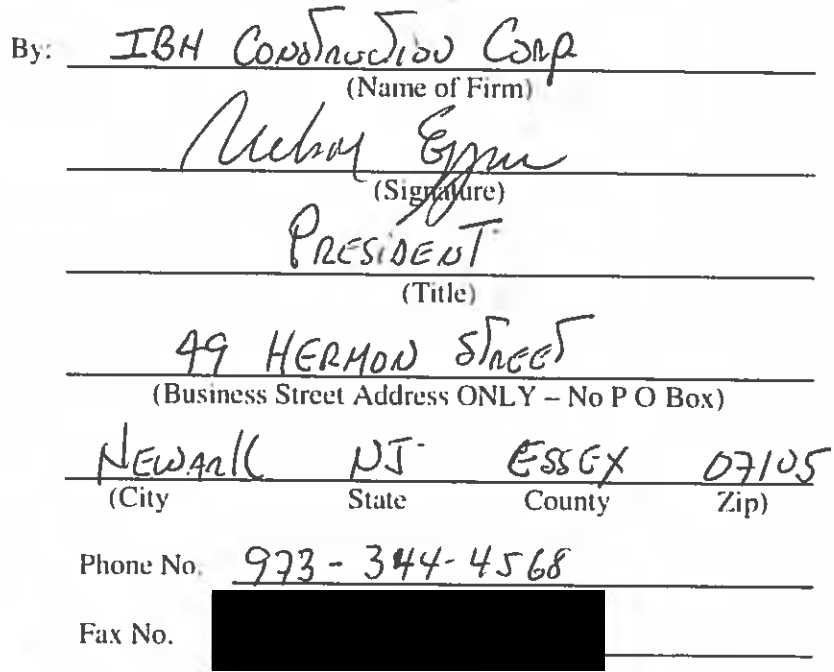 By: IBH Construction Corp
(Name of Firm)
(Signature)
PRESIDENT
(Title)
49 HERMON STREET
(Business Street Address ONLY – No P O Box)
NEWARK NJ ESSEX 07105
(City State County Zip)
Phone No. 973-344-4568
Fax No.